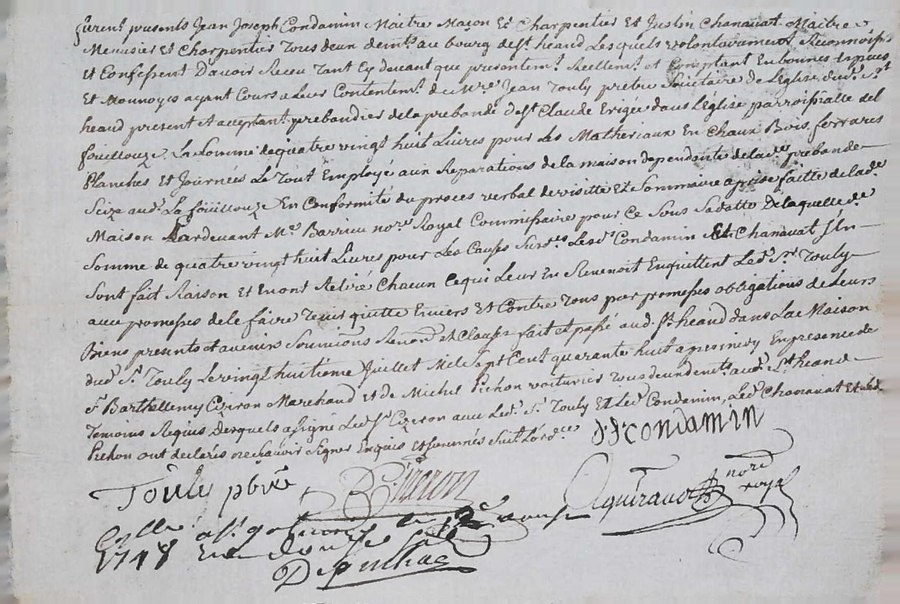 furent presents Jean Joseph Condamin Maitre Maçon Et Charpentier Et Justin Chanavat Maitre
Menusier Et Charpentier Tous deux demts au bourg de st heand Lesquels volontairement Reconnoiss
Et Confessent D'avoir Receu Tant Cy devant que presentemt Reellemt et Comptant En bonnes Especes
Et Monnoyes ayant Cours a Leur Contentemt de Mre Jean Touly prebtre Societaire de L'eglise dud st
heand present Et acceptant prebandier de la prebande de st Claude Erigée dans L'église parroissialle del
fouillouze La Somme de quatre vingt huit Livres pour Les Matheriaux En Chaux Bois ferrares
Planches Et Journées Le Tout Employé aux Reparations de la maison dependante de lade prebande
Size aud La fouillouze En Conformité du proces verbal de visitte Et Sommaire aprise faitte de lade
Maison Pardevant Me Barrieu nore Royal Commissaire pour Ce Sous Sa datte De laquelle de
Somme de quatre vingt huit Livres pour Les Causes Susd Lesd Condamin Et Chanavat S'En
Sont fait Raison Et En ont Retiré Chacun Ce qui Leur En Revenoit Enquittent Led Sr Touly
aux promesses de le faire Tenir quitte Envers Et Contre Tous par promesses obligations de Leurs
Biens presents et avenirs Soumions Renons et Clauses fait et passé aud St heand dans La Maison
dud Sr Touly Le vingt huitieme Juillet Mil Sept Cent quarante huit apres midy En presence de
sr Barthellemy Ciziron Marchand et de Michel Pichon voiturier Tous deux demts aud St heand
Temoins Requis Desquels a signé Led Sr Ciziron avec Led Sr Touly Et Led Condamin, Led Chanavat Et Led
Pichon ont declarés ne Sçavoir Signer Enquis et Sommés Suit Lordce
JJ Condamin
Touly pbre
B Ciziron
nore
royal
1748